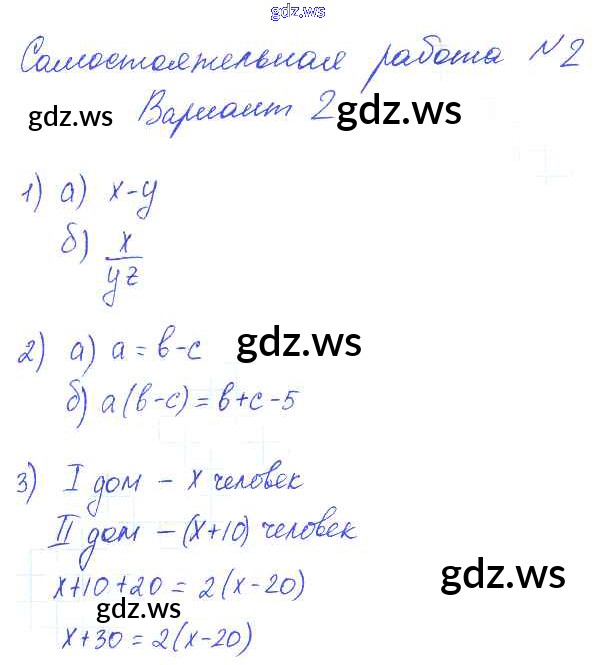 gdz.ws
Самостоятельная работа №2
gdz.ws Вариант 2 gdz.ws
1) а) x-y
б) x/yz
2) а) a = b-c gdz.ws
б) a(b-c) = b+c-5
3) I дом - x человек
II дом - (x+10) человек
x+10+20 = 2(x-20) gdz.ws
gdz.ws
x+30 = 2(x-20)